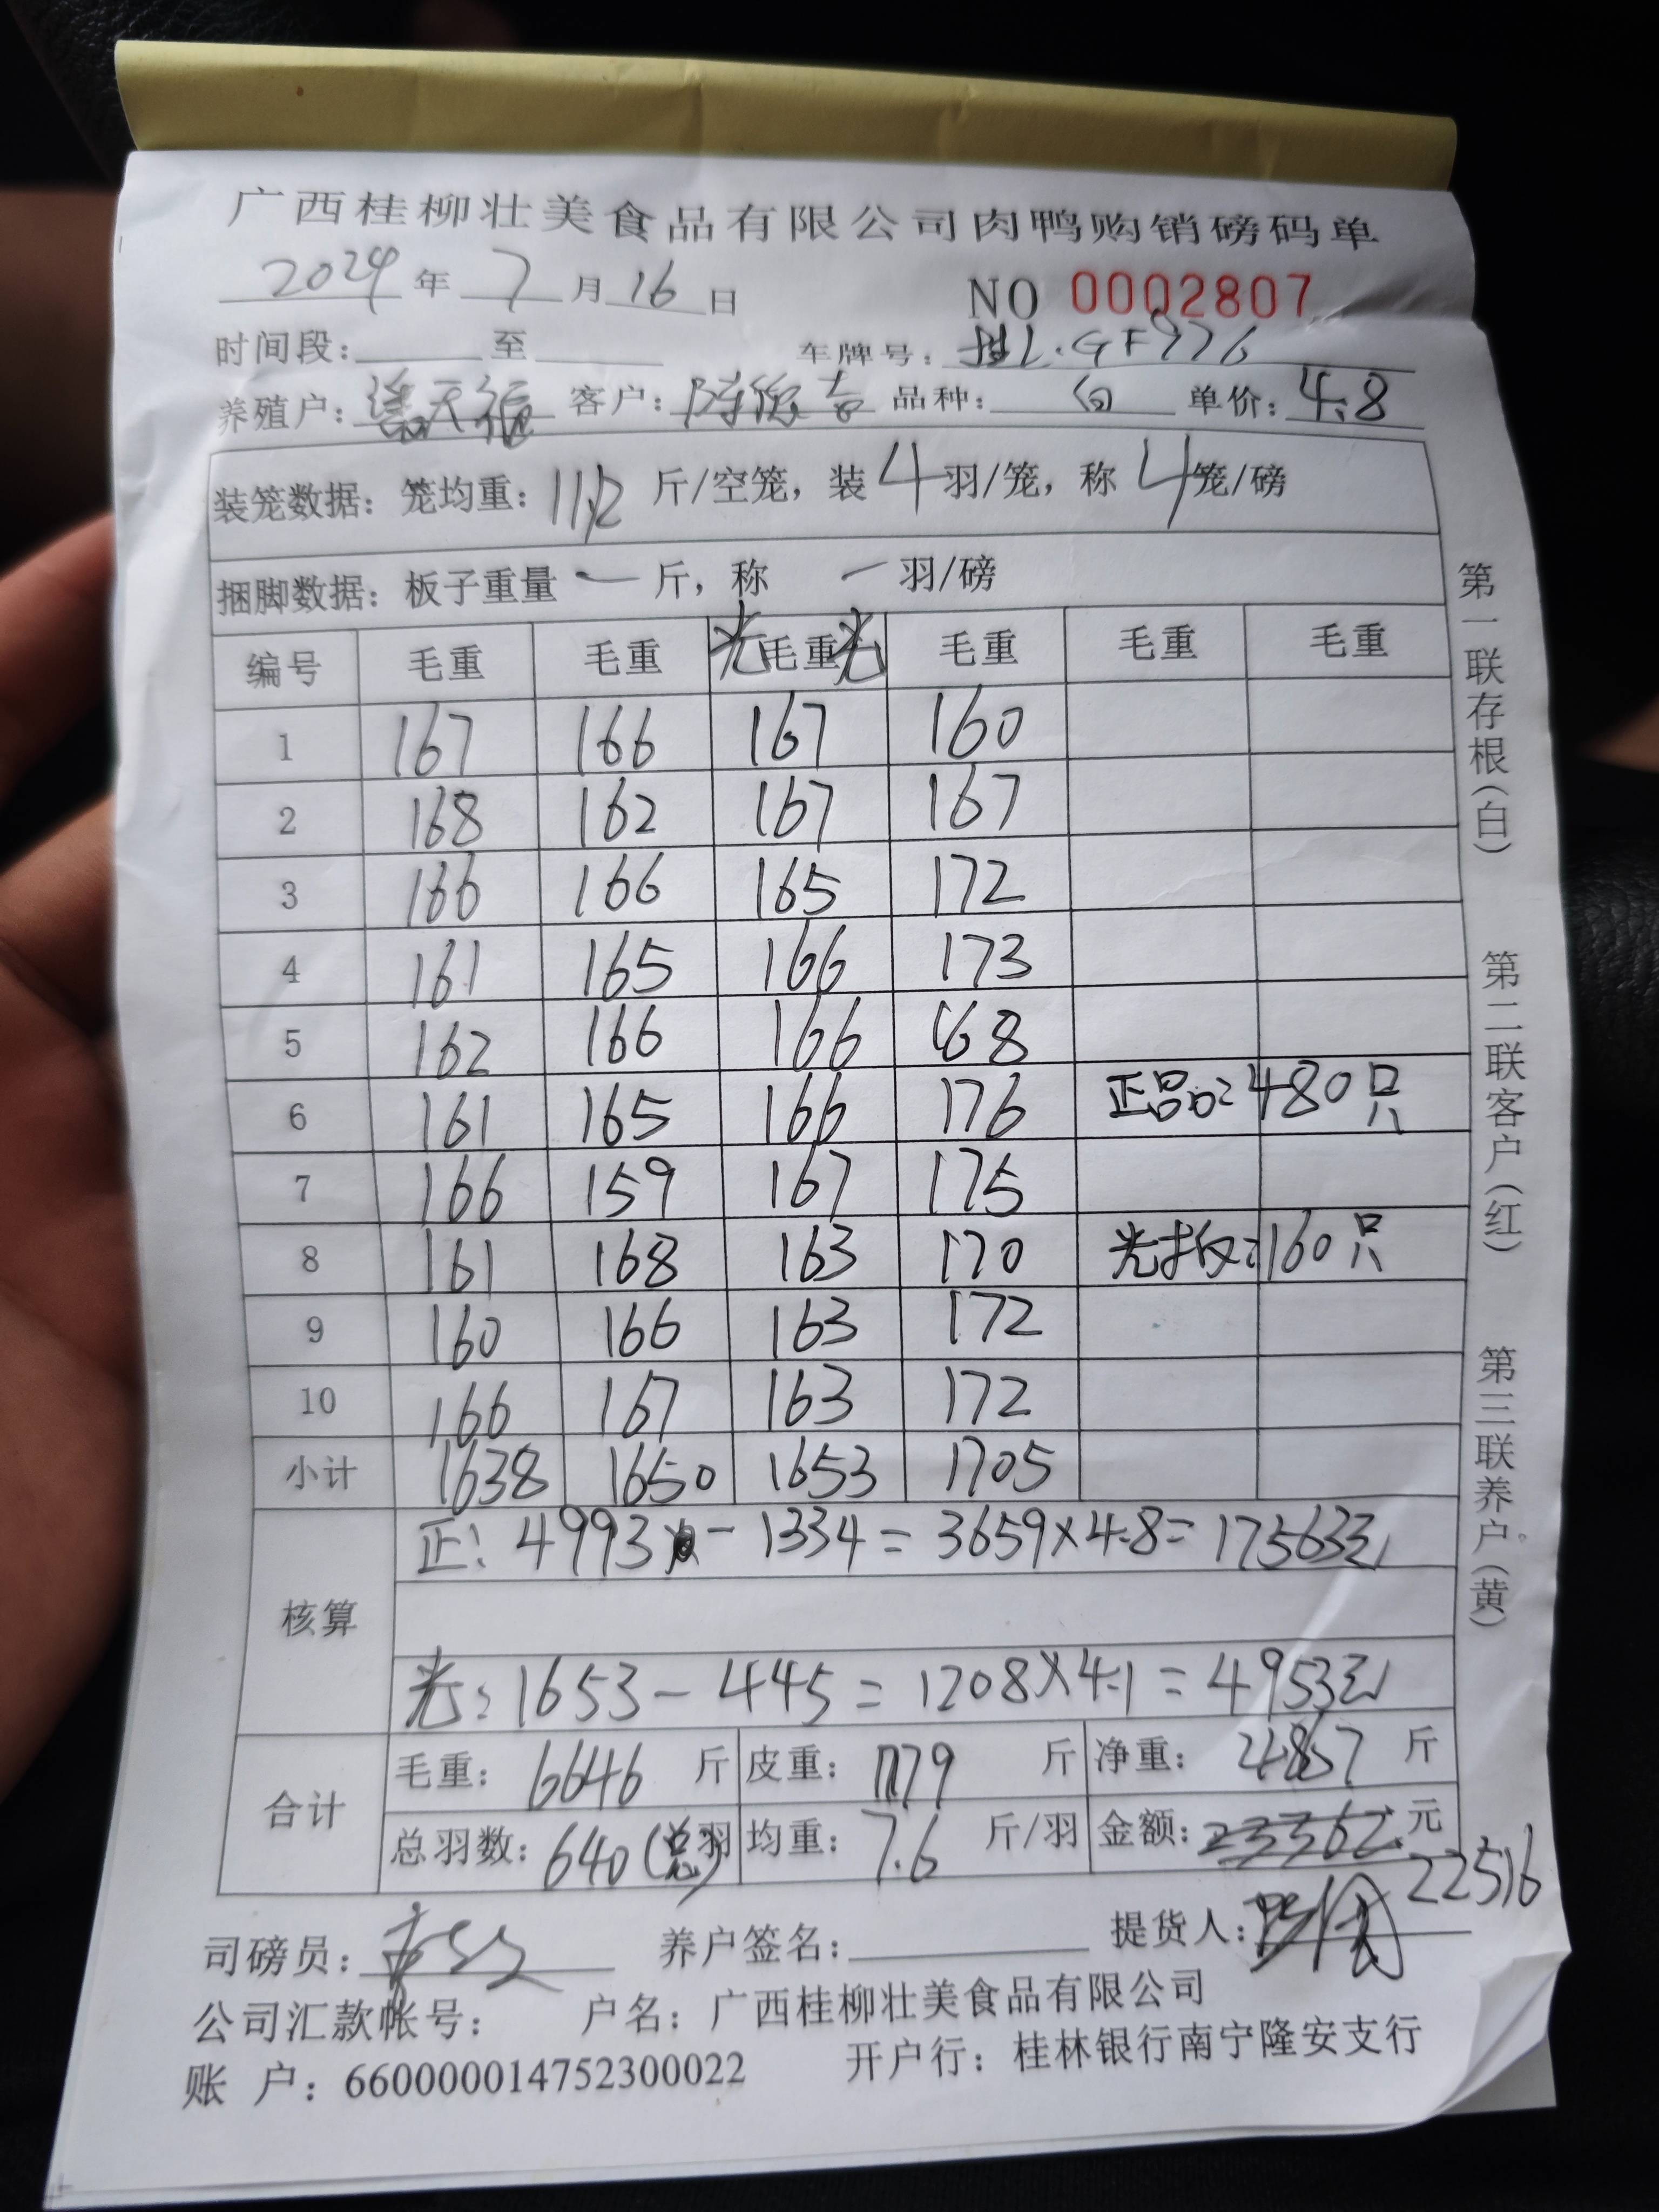 广西桂柳壮美食品有限公司肉鸭购销磅码单
2024年 7月16日 NO 0002807
时间段: 至 车牌号: GF976
养殖户: 天福 客户: 陈德吉 品种: 白 单价: 4.8
装笼数据: 笼均重: 11.12 斤/空笼, 装 4 羽/笼, 称 4 笼/磅
捆脚数据: 板子重量 一 斤, 称 一 羽/磅
编号 毛重 毛重 光毛重光 毛重 毛重 毛重
1 167 166 167 160
2 168 162 167 167
3 166 166 165 172
4 161 165 166 173
5 162 166 166 168
6 161 165 166 176 正品:480只
7 166 159 167 175
8 161 168 163 170 光板:160只
9 160 166 163 172
10 166 167 163 172
小计 1638 1650 1653 1705
核算 正: 4993 - 1334 = 3659×4.8= 17563元
光: 1653 - 445 = 1208×4.1 = 4953元
合计 毛重: 6646 斤 皮重: 1779 斤 净重: 4867 斤
总羽数: 640(总)羽 均重: 7.6 斤/羽 金额: 23362 元
22516
司磅员: 养户签名: 提货人:
公司汇款帐号: 户名: 广西桂柳壮美食品有限公司
账 户: 660000014752300022 开户行: 桂林银行南宁隆安支行
第一联存根(白) 第二联客户(红) 第三联养户(黄)